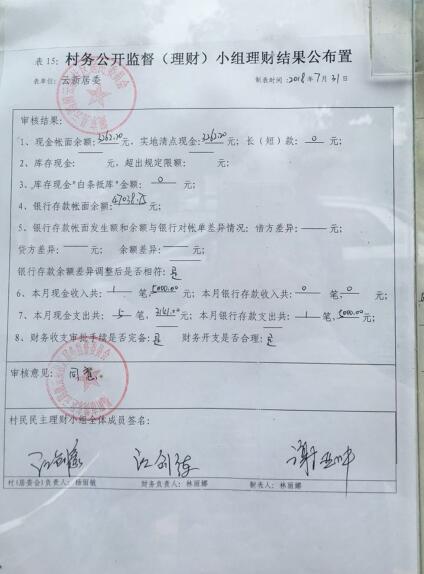 表 15: 村务公开监督（理财）小组理财结果公布置
表单位: 云新居委 制表时间: 2018 年 7 月 31 日
审核结果:
1、现金帐面余额: 3262.70 元, 实地清点现金: 3262.70 元; 长（短）款: 0 元;
2、库存现金: 元, 超出规定限额: 元;
3、库存现金"白条抵库"金额: 0 元;
4、银行存款帐面余额: 47038.75 元;
5、银行存款帐面发生额和余额与银行对帐单差异情况: 借方差异: 元;
贷方差异: 元; 余额差异: 元;
银行存款余额差异调整后是否相符: 是
6、本月现金收入共: 1 笔, 5000.00 元; 本月银行存款收入共: 0 笔, 0 元;
7、本月现金支出共: 5 笔, 3141.00 元; 本月银行存款支出共: 1 笔, 5000.00 元;
8、财务收支审批手续是否完备: 是 财务开支是否合理: 是
审核意见: 同意。
村民民主理财小组全体成员签名:
村(居委会)负责人: 杨丽敏 财务负责人: 林丽娜 制表人: 林丽娜